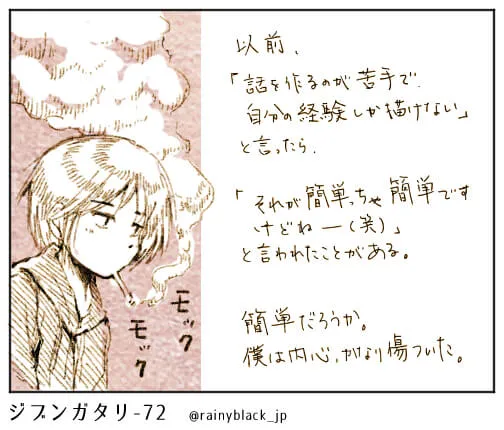 以前、
「話を作るのが苦手で、
自分の経験しか描けない」
と言ったら、
「それが簡単っちゃ簡単です
けどねー(笑)」
と言われたことがある。
簡単だろうか。
僕は内心、かなり傷ついた。
モック
モック
ジブンガタリ-72 @rainyblack_jp